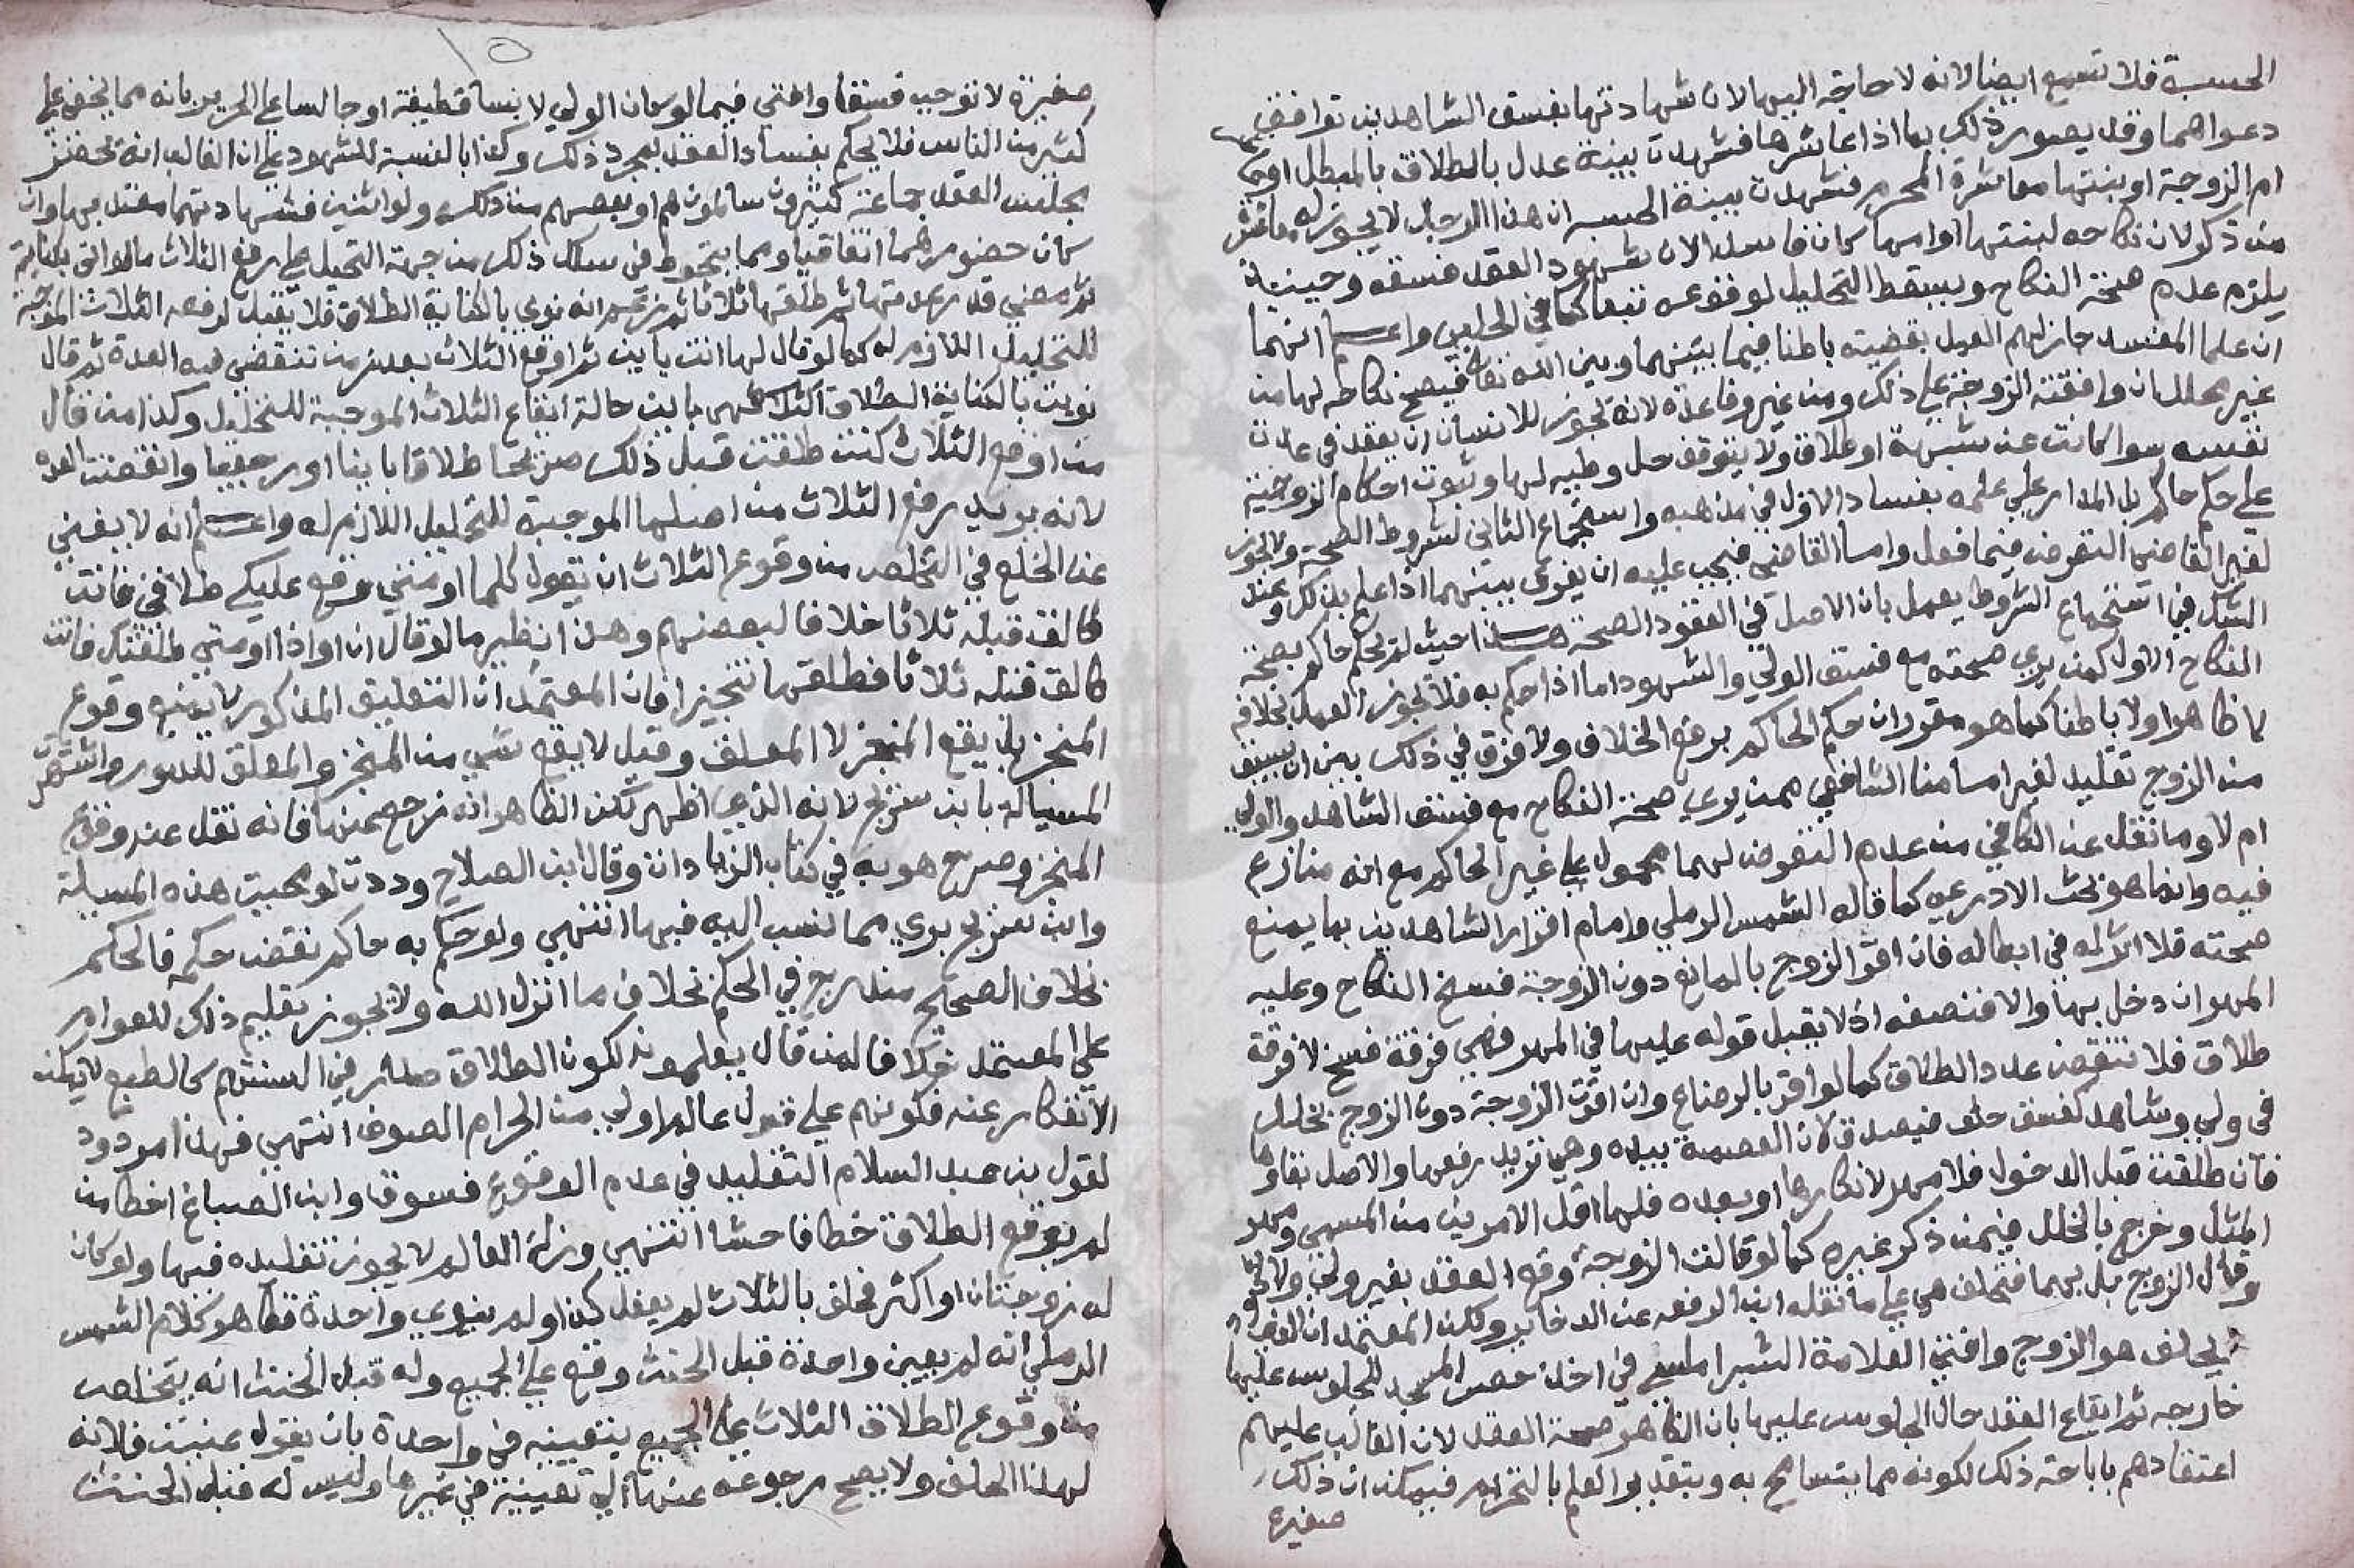 الحسبة فلا تسمع ايضا لانه لا حاجة اليها لان شهادتها بفسق الشاهدين توافق
دعواهما وقد يصور ذلك بما اذا عاشرها فشهدت بينة عدل بالطلاق بالمبطل او
ام الزوجة او بنتها معاشرة المحرم فشهدت بينة الحسبة ان هذا الرجل لا يجوز له معاشرة
من ذكر لان نكاحه لبنتها او امها كان فاسدا لان شهود العقد فسقه وحينئذ
يلزم عدم صحة النكاح ويسقط التحليل لوقوعه تبعا كما في الحلبي واعلم انهما
ان علما المفسد جاز لهم العمل بقضيته باطنا فيما بينهما وبين الله تعالى فيصح نكاحه لها من
غير محلل ان وافقته الزوجة على ذلك ومن غير وفا عدة لانه يجوز للانسان ان يعقد في عدة
نفسه سوا كانت عن شبهة او طلاق ولا يتوقف حل وطيه لها وثبوت احكام الزوجية
على حكم حاكم بل المدار على علمه بفساد الاول في مذهبه واستجماع الثاني لشروط الصحة ولا يجوز
لغير القاضي التعرض فيما فعل واما القاضي فيجب عليه ان يفرق بينهما اذا علم بذلك وعند
الشك في استجماع الشروط يعمل بان الاصل في العقود الصحة هذا حيث لم يحكم حاكم بصحة
النكاح الاول كمن يرى صحته مع فسق الولي والشهود اما اذا حكم به فلا يجوز العمل بخلافه
لا ظاهرا ولا باطنا كما هو مقرر ان حكم الحاكم يرفع الخلاف ولا فرق في ذلك بين ان يسبق
من الزوج تقليد لغير امامنا الشافعي ممن يرى صحة النكاح مع فسق الشاهد والولي
ام لا وما نقل عن الكافي من عدم التعرض لهما محمول على غير الحاكم مع انه منازع
فيه وانما هو بحث الاذرعي كما قاله الشمس الرملي وامام اقرار الشاهدين بما يمنع
صحته فلا اثر له في ابطاله فان اقر الزوج بالمانع دون الزوجة فسخ النكاح وعليه
المهر ان دخل بها والا فنصفه اذ لا يقبل قوله عليها في المهر فهي فرقة فسخ لا فرقة
طلاق فلا تنقص عدد الطلاق كما لو اقر بالرضاع وان اقرت الزوجة دون الزوج بخلل
في ولي وشاهد كفسق حلف فيصدق لان العصمة بيده وهي تريد رفعها والاصل بقاوها
فان طلقت قبل الدخول فلا مهر لانكارها او بعده فلها اقل الامرين من المسمى ومهر
المثل وخرج بالخلل فيمن ذكر غيره كما لو قالت الزوجة وقع العقد بغير ولي ولا
وقال الزوج بل بهما فتحلف هي على ما نقله ابن الرفعه عن الدخاير ولكن المعتمد ان
يحلف هو الزوج وافتى العلامة الشبراملسي في اخذ حصر المسجد للجلوس عليها
خارجه ثم ايقاع العقد حال الجلوس عليها بان الظاهر صحة العقد لان الغالب عليهم
اعتقادهم باباحة ذلك لكونه مما يتسامح به وبتقدير العلم بالتحريم فيمكن ان ذلك
صغيرة
١٥
صغيرة لا توجب فسقا وافتى فيما لو كان الولي لابسا قطيفة او جالسا على الحرير بانه مما يخفى على
كثير من الناس فلا يحكم بفساد العقد بمجرد ذلك وكذا بالنسبة للشهود على ان الغالب انه يحضر
مجلس العقد جماعة كثيرون سالمون هم او بعضهم من ذلك ولو اثنين فشهادتهما معتد بها وان
كان حضورهما اتفاقيا ومما ينخرط في سلك ذلك من جهة التحيل على رفع الثلاث ما لو اتى بكناية
ثم مضى قدر عدتها ثم طلقها ثلاثا ثم زعم انه نوى بالكناية الطلاق فلا يقبل لرفعه الثلاث الموجبة
للتحليل اللازم له كما لو قال لها انت باين ثم اوقع الثلاث بعد زمن تنقضي فيه العدة ثم قال
نويت بالكناية الطلاق فهي باين حالة ايقاع الثلاث الموجبة للتحليل وكذا من قال
من اوقع الثلاث كنت طلقت قبل ذلك طلاقا باينا او رجعيا وانقضت العده
لانه يريد رفع الثلاث من اصلها الموجبة للتحليل اللازم له واعلم انه لا يغني
عن الخلع في التخلص من وقوع الثلاث ان يقول كلما او متى وقع عليك طلاقي فانت
طالق قبله ثلاثا خلافا لبعضهم وهذا نظير ما لو قال ان او اذا او متى طلقتك فانت
طالق قبله ثلاثا فطلقها تنجيزا فان المعتمد ان التعليق المذكور لا يمنع وقوع
المنجز بل يقع المنجز لا المعلق وقيل لا يقع شي من المنجز والمعلق للدور واشتهرت
المسيالة بابن سريج لانه الذي اظهر لكن الظاهر انه رجع عنها فانه نقل عنه وقوع
المنجز وصرح هو به في كتاب الزيادات وقال ابن الصلاح وددت لو محيت هذه المسيلة
وابن سريج بري مما نسب اليه فيها انتهى ولو حكم به حاكم نقض حكمه فالحكم
بخلاف الصحيح مندرج في الحكم بخلاف ما انزل الله ولا يجوز تعليم ذلك للعوام
على المعتمد خلافا لمن قال بعلمونه لكون الطلاق صار في السنتهم كالطبع لا يمكنهم
الانفكاك عنه فكونهم على قول عالم اولى من الحرام الصرف انتهى فهذا مردود
لقول بن عبد السلام التقليد في عدم الوقوع فسوق وابن الصباغ اخطا من
لم يوقع الطلاق خطا فاحشا انتهى وزلة العالم لا يجوز تقليده فيها ولو كان
له زوجتان او اكثر فحلف بالثلاث لم يفعل كذا ولم ينوي واحدة فظاهر كلام الشمس
الرملي انه لم يعين واحدة قبل الحنث وقع على الجميع وله قبل الحنث انه يتخلص
من وقوع الطلاق الثلاث على الجميع بتعيينه في واحدة بان يقول عينت فلانه
لهذا الحلف ولا يصح رجوعه عنها الى تعيينه في غيرها وليس له قبل الحنث